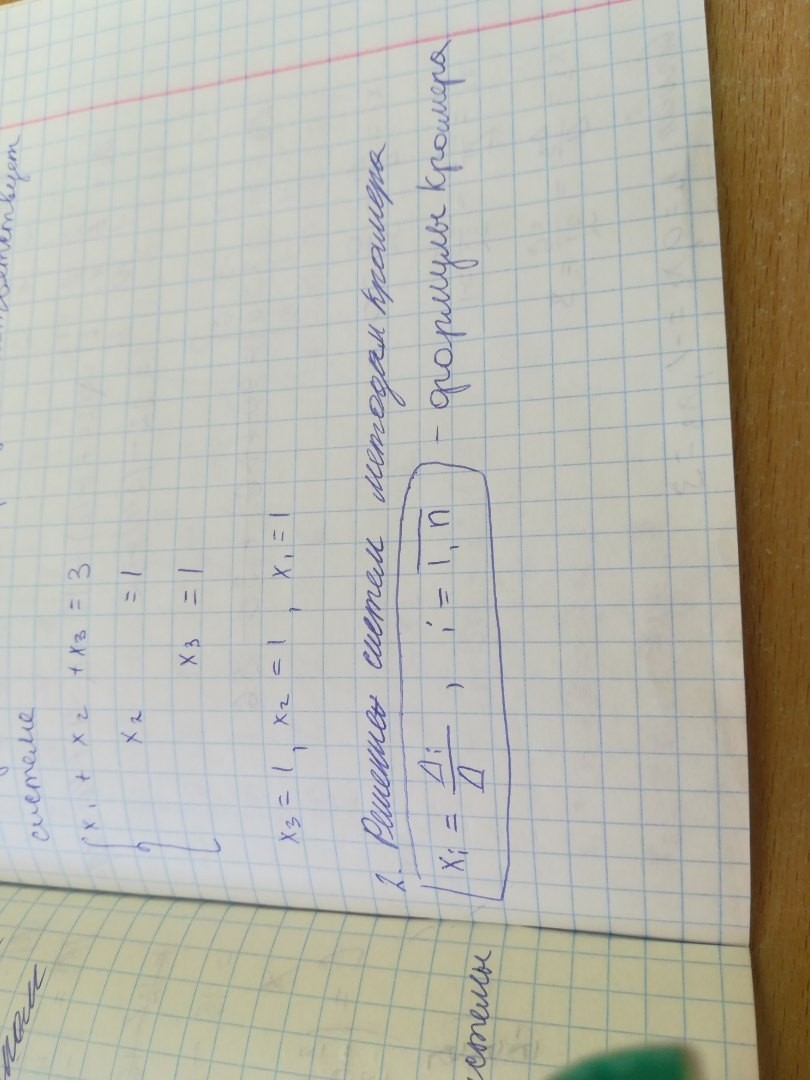 системе
x₁ + x₂ + x₃ = 3
x₂ = 1
x₃ = 1
x₃ = 1, x₂ = 1, x₁ = 1
2. Решение систем методом Крамера
xᵢ = Δᵢ/Δ, i = 1, n - формулы Крамера
стемы